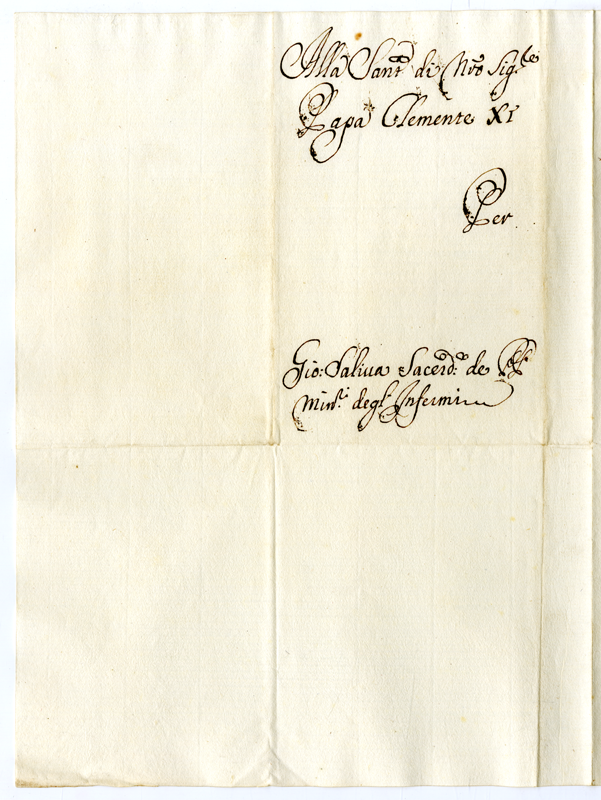 Alla Sant.à di Nrõ Sig.re
Papa Clemente XI
Per
Gio: Saliua Sacerd.e de PP.
Min.ri degl' Infermi